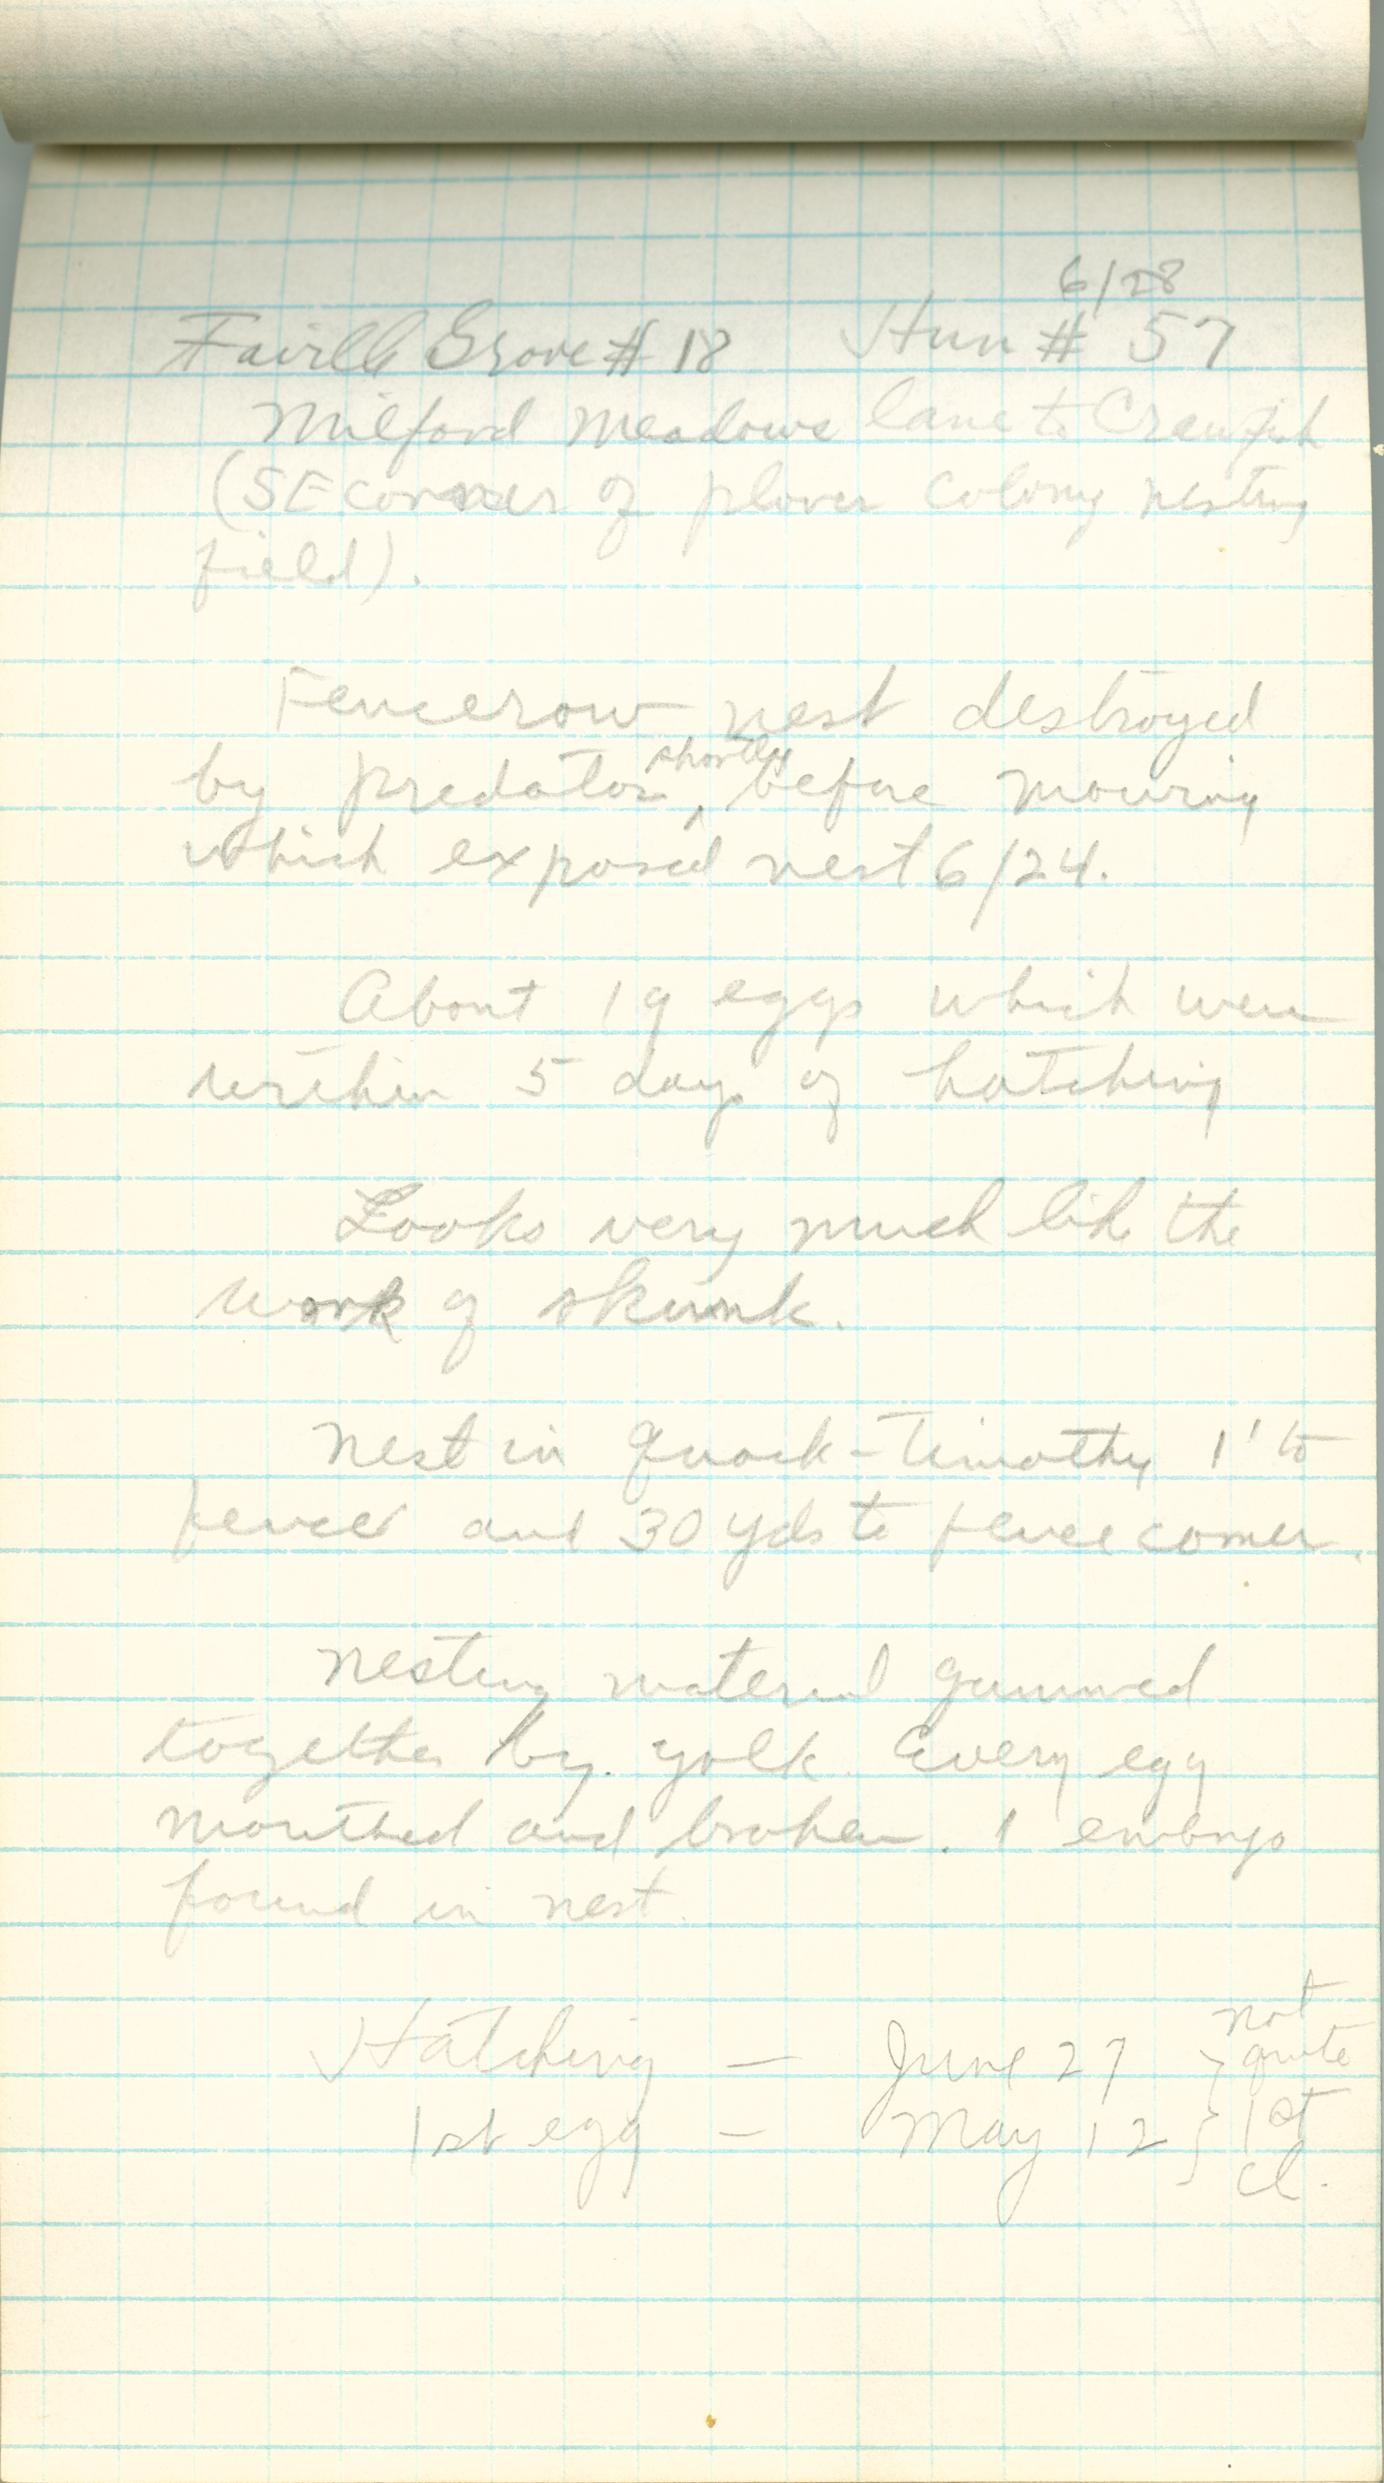 6/28
Faville Grove # 18 Hun # 57
Milford Meadows lane to Crawfish
(SE corner of plover colony nesting
field).
Fencerow nest destroyed
by predator shortly before mowing
which exposed nest 6/24.
About 19 eggs which were
within 5 days of hatching
Looks very much like the
work of skunk.
Nest in quack-timothy 1' to
fence and 30 yds to fence corner.
Nesting material gummed
together by yolk. Every egg
mouthed and broken. 1 embryo
found in nest.
Hatching — June 27 } not quite
1st egg — May 12 } 1st cl.